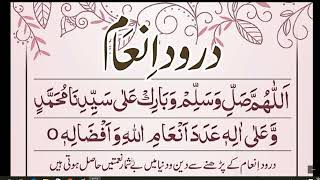 درودِ اِنعام
اَللّٰهُمَّ صَلِّ وَسَلِّمْ وَبَارِكْ عَلٰى سَيِّدِنَا مُحَمَّدٍ
وَّعَلٰى اٰلِهٖ عَدَدَ اَنْعَامِ اللهِ وَاَفْضَالِهٖ ۝
درودِ اِنعام کے پڑھنے سے دین و دنیا میں بے شمار نعمتیں حاصل ہوتی ہیں